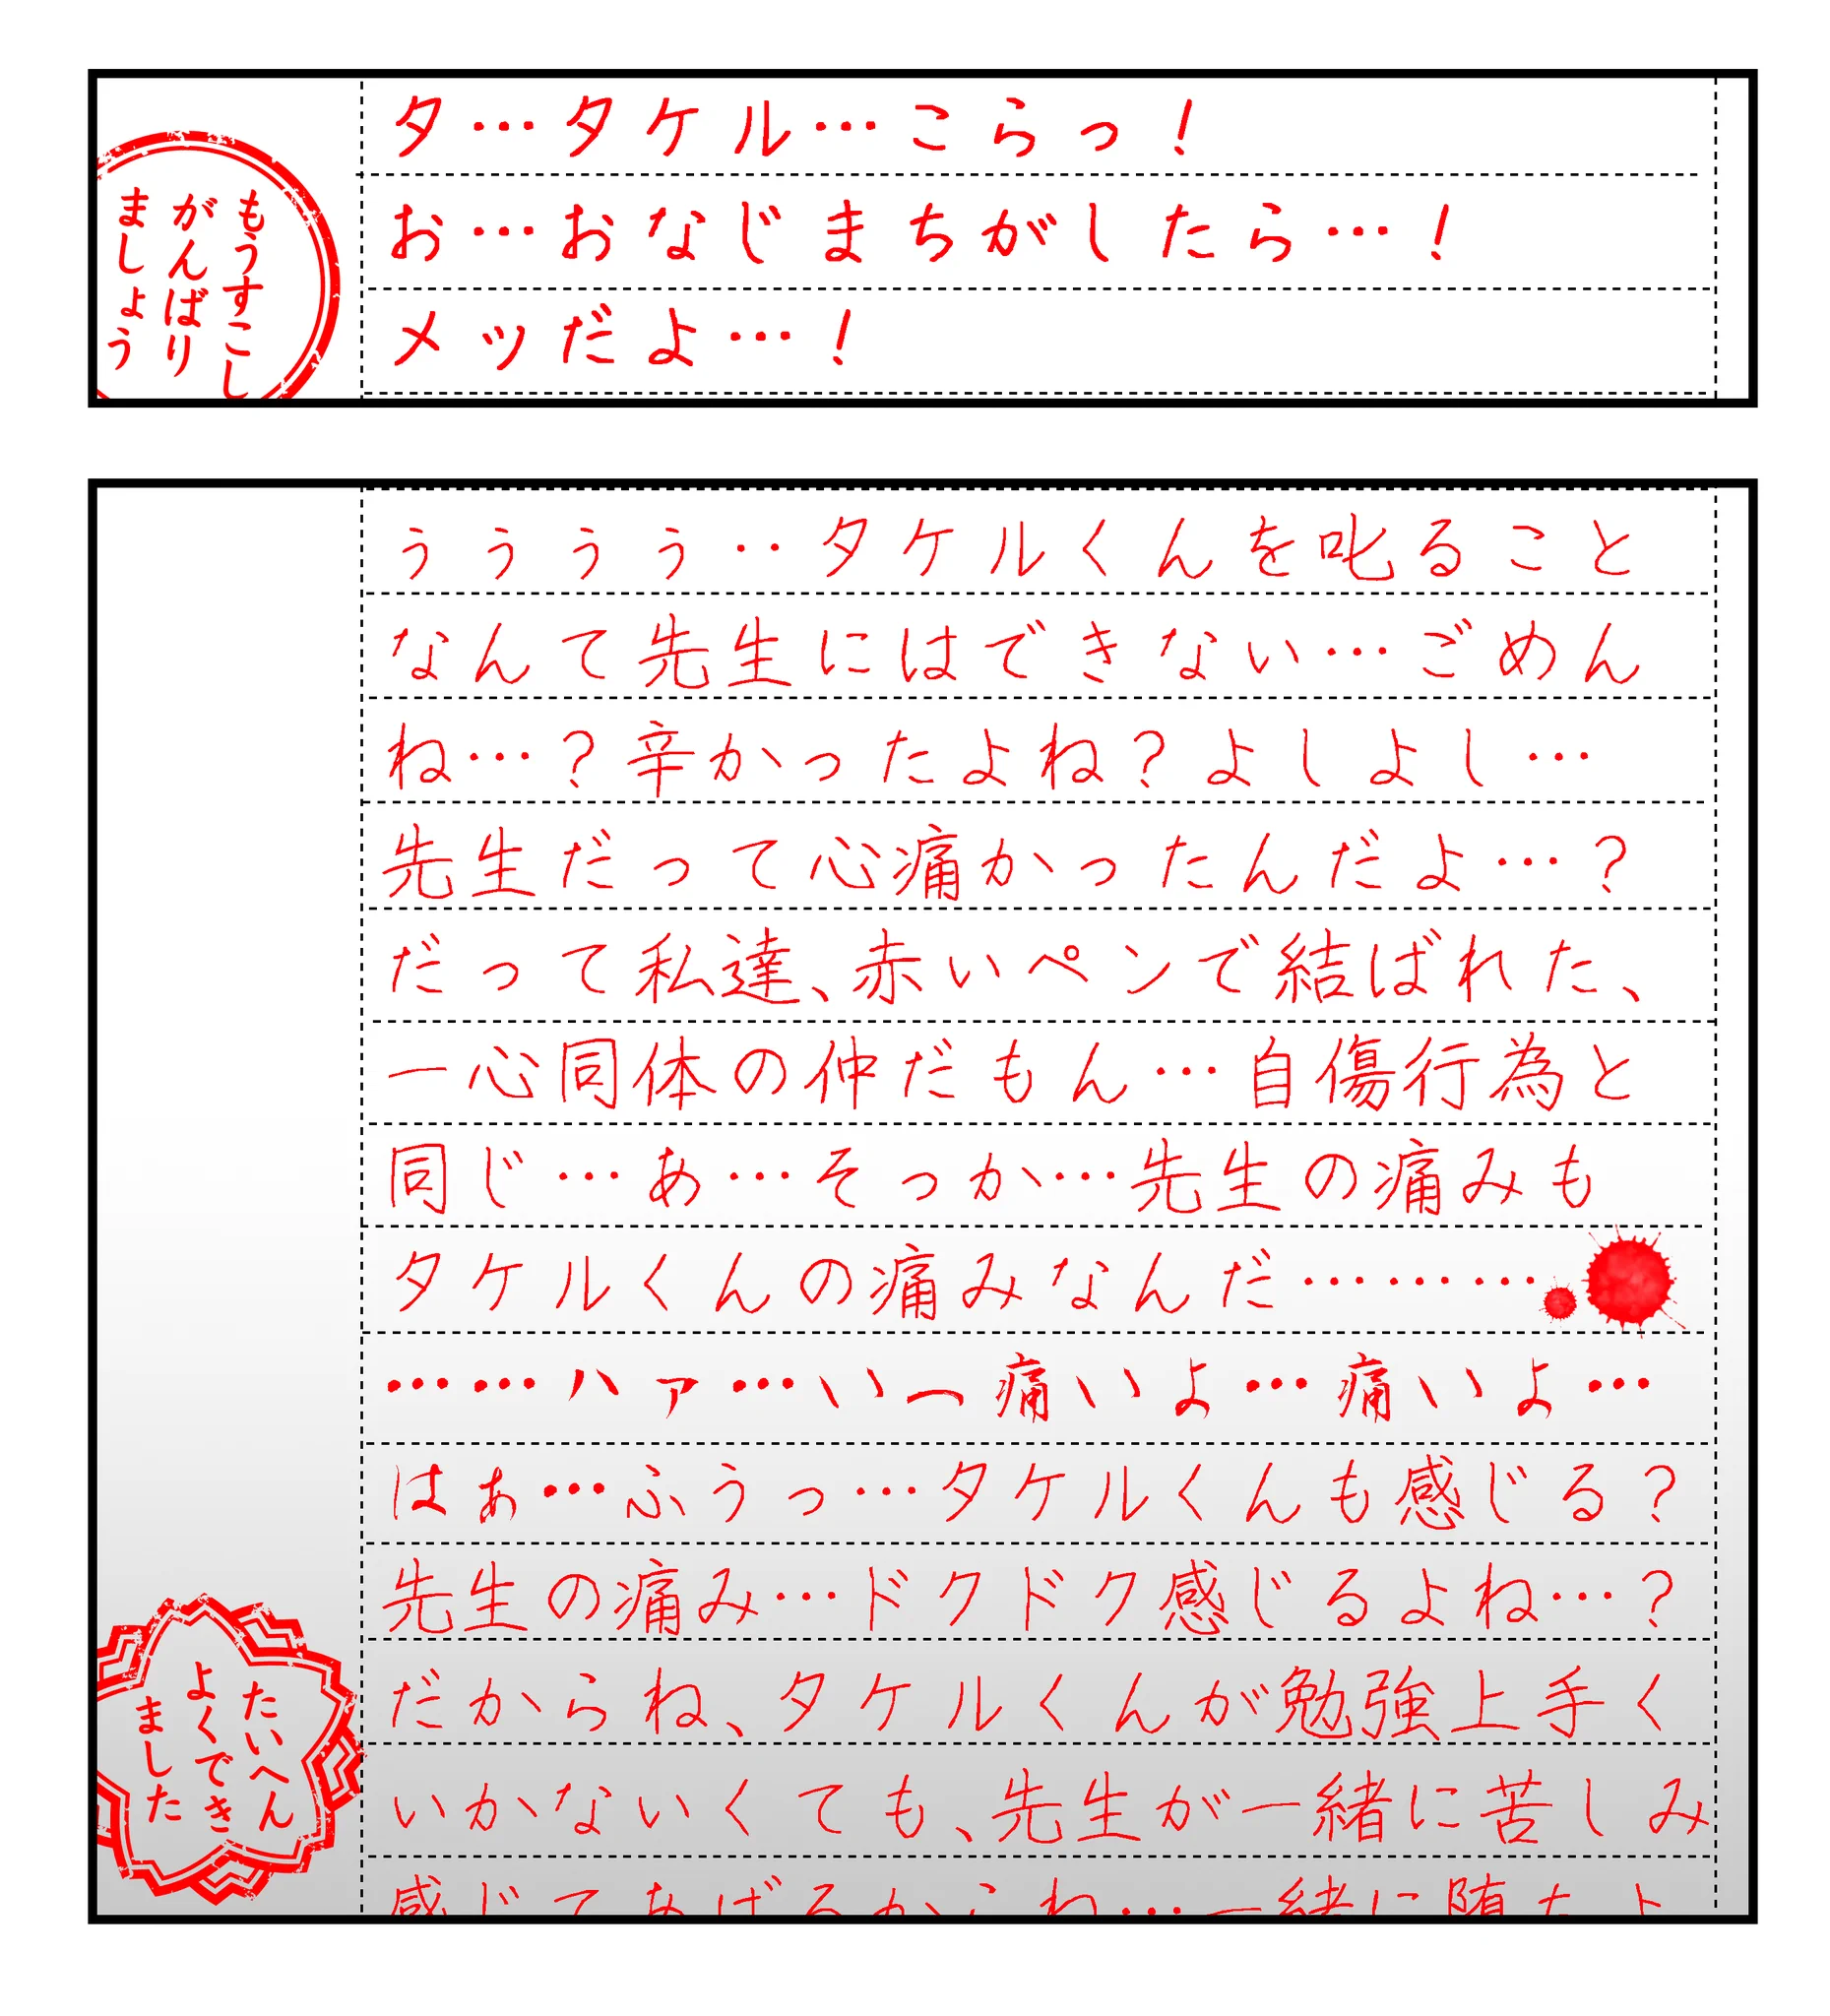 もうすこし
がんばり
ましょう
タ…タケル…こらっ！
お…おなじまちがしたら…！
メッだよ…！
ぅぅぅぅ‥タケルくんを叱ること
なんて先生にはできない…ごめん
ね…？辛かったよね？よしよし…
先生だって心痛かったんだよ…？
だって私達、赤いペンで結ばれた、
一心同体の仲だもん…自傷行為と
同じ…あ…そっか…先生の痛みも
タケルくんの痛みなんだ………
……ハァ…い一痛いよ…痛いよ…
はぁ…ふうっ…タケルくんも感じる？
先生の痛み…ドクドク感じるよね…？
だからね、タケルくんが勉強上手く
いかないくても、先生が一緒に苦しみ
感じてあげるからね…一緒に堕ちよ
たいへん
よくでき
ました